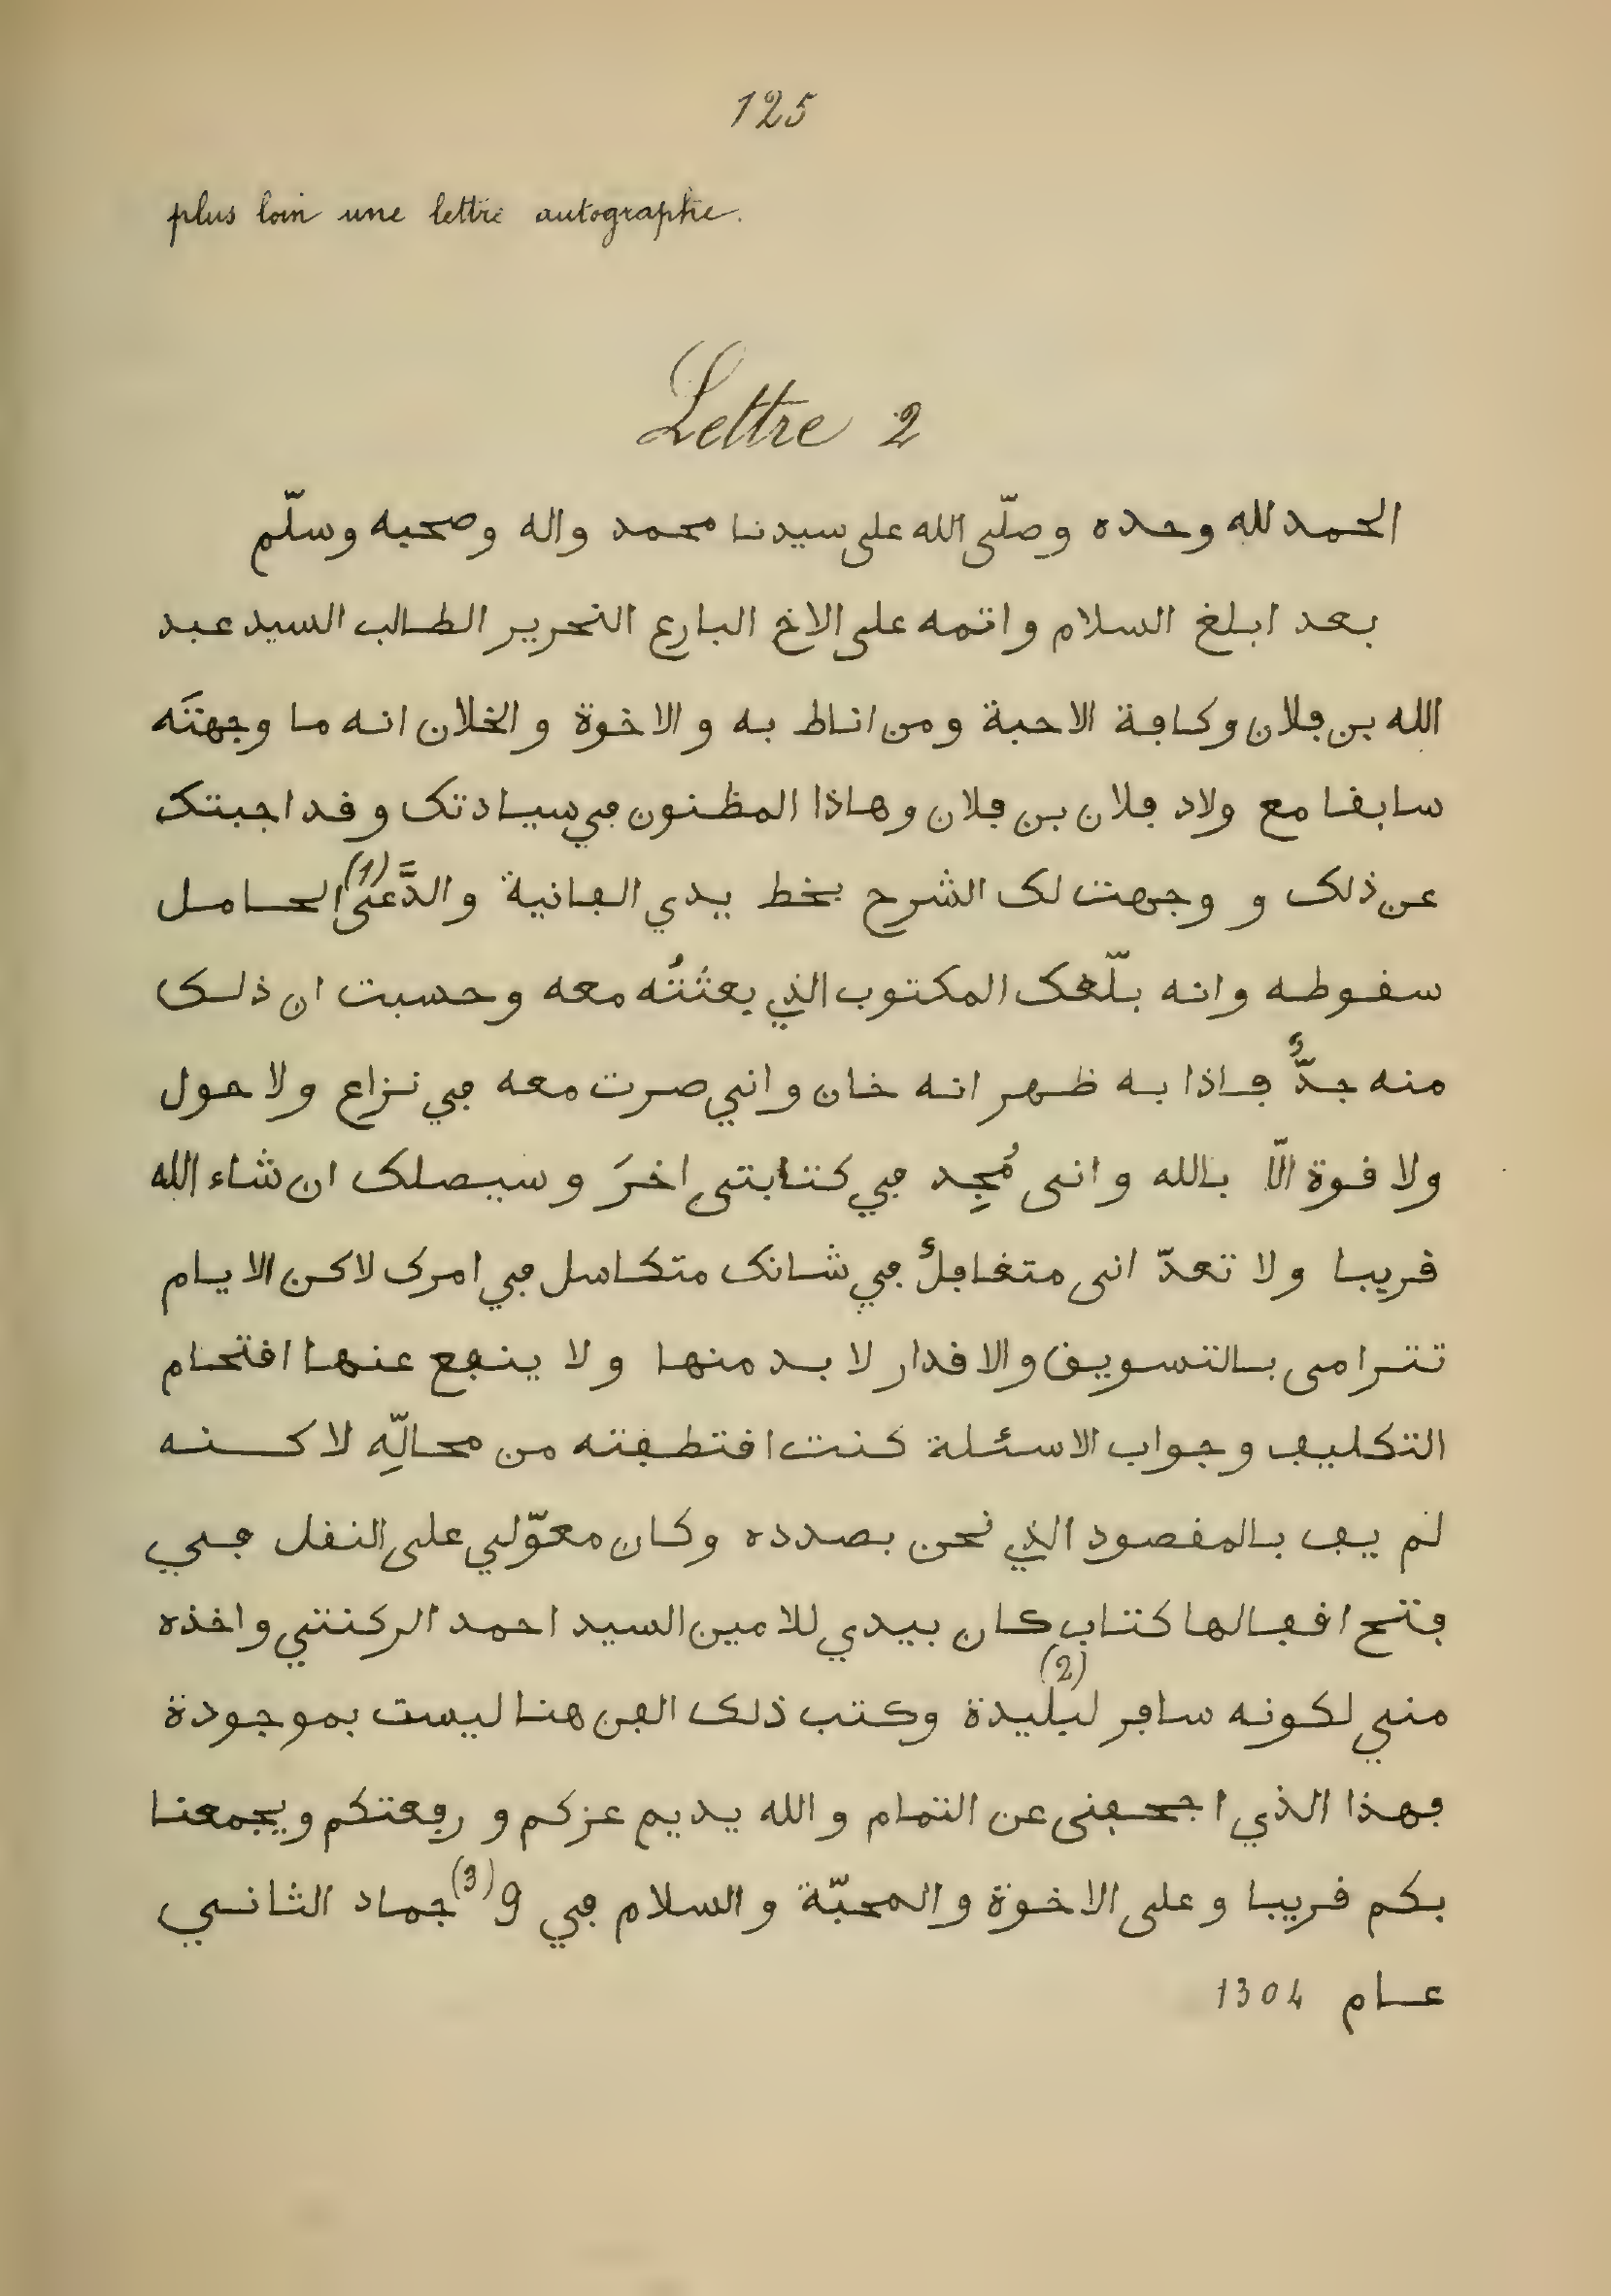 125
plus loin une lettre autographe.
Lettre 2
الحمد لله وحده وصلّى الله على سيدنا محمد واله وصحبه وسلّم
بعد ابلغ السلام واتمه على الاخ البارع النحرير الطالب السيد عبد
الله بن ڢلان وكاڢة الاحبة ومن اناط به والاخوة والخلان انه ما وجهتَه
سابڧا مع ولاد ڢلان بن ڢلان وهاذا المظنون ڢي سيادتك وڧد اجبتك
عن ذلك و وجهت لك الشرح بخط يدي الڢانية والدَّعَى (1) الحامل
سڧوطه وانه بلّغك المكتوب الذي بعثتُه معه وحسبت ان ذلك
منه جدٌّ ڢاذا به ظهر انه خان واني صرت معه ڢي نزاع ولا حول
ولا ڧوة الّا بالله وانى مُجِد ڢي كتابتى اخرَ وسيصلك ان شاء الله
ڧريبا ولا تعدّ انى متغاڢلٌ ڢي شانك متكاسل ڢي امرك لاكن الايام
تترامى بالتسويڢ والاڧدار لا بد منها ولا ينڢع عنها اڧتحام
التكليڢ وجواب الاسئلة كنت اڧتطڢته من محالّهِ لاكنه
لم يڢ بالمڧصود الذي نحن بصدده وكان معوّلي على النڧل ڢي
ڢتح اڧڢالها كتاب كان بيدي للامين السيد احمد الركنتي واخذه
مني لكونه ساڢر لبليدة (2) وكتب ذلك الڢن هنا ليست بموجودة
ڢهذا الذي اجحڢنى عن التمام والله يديم عزكم ورڢعتكم ويجمعنا
بكم ڧريبا وعلى الاخوة والمحبّة والسلام ڢي 9 (3) جماد الثاني
عام 1304